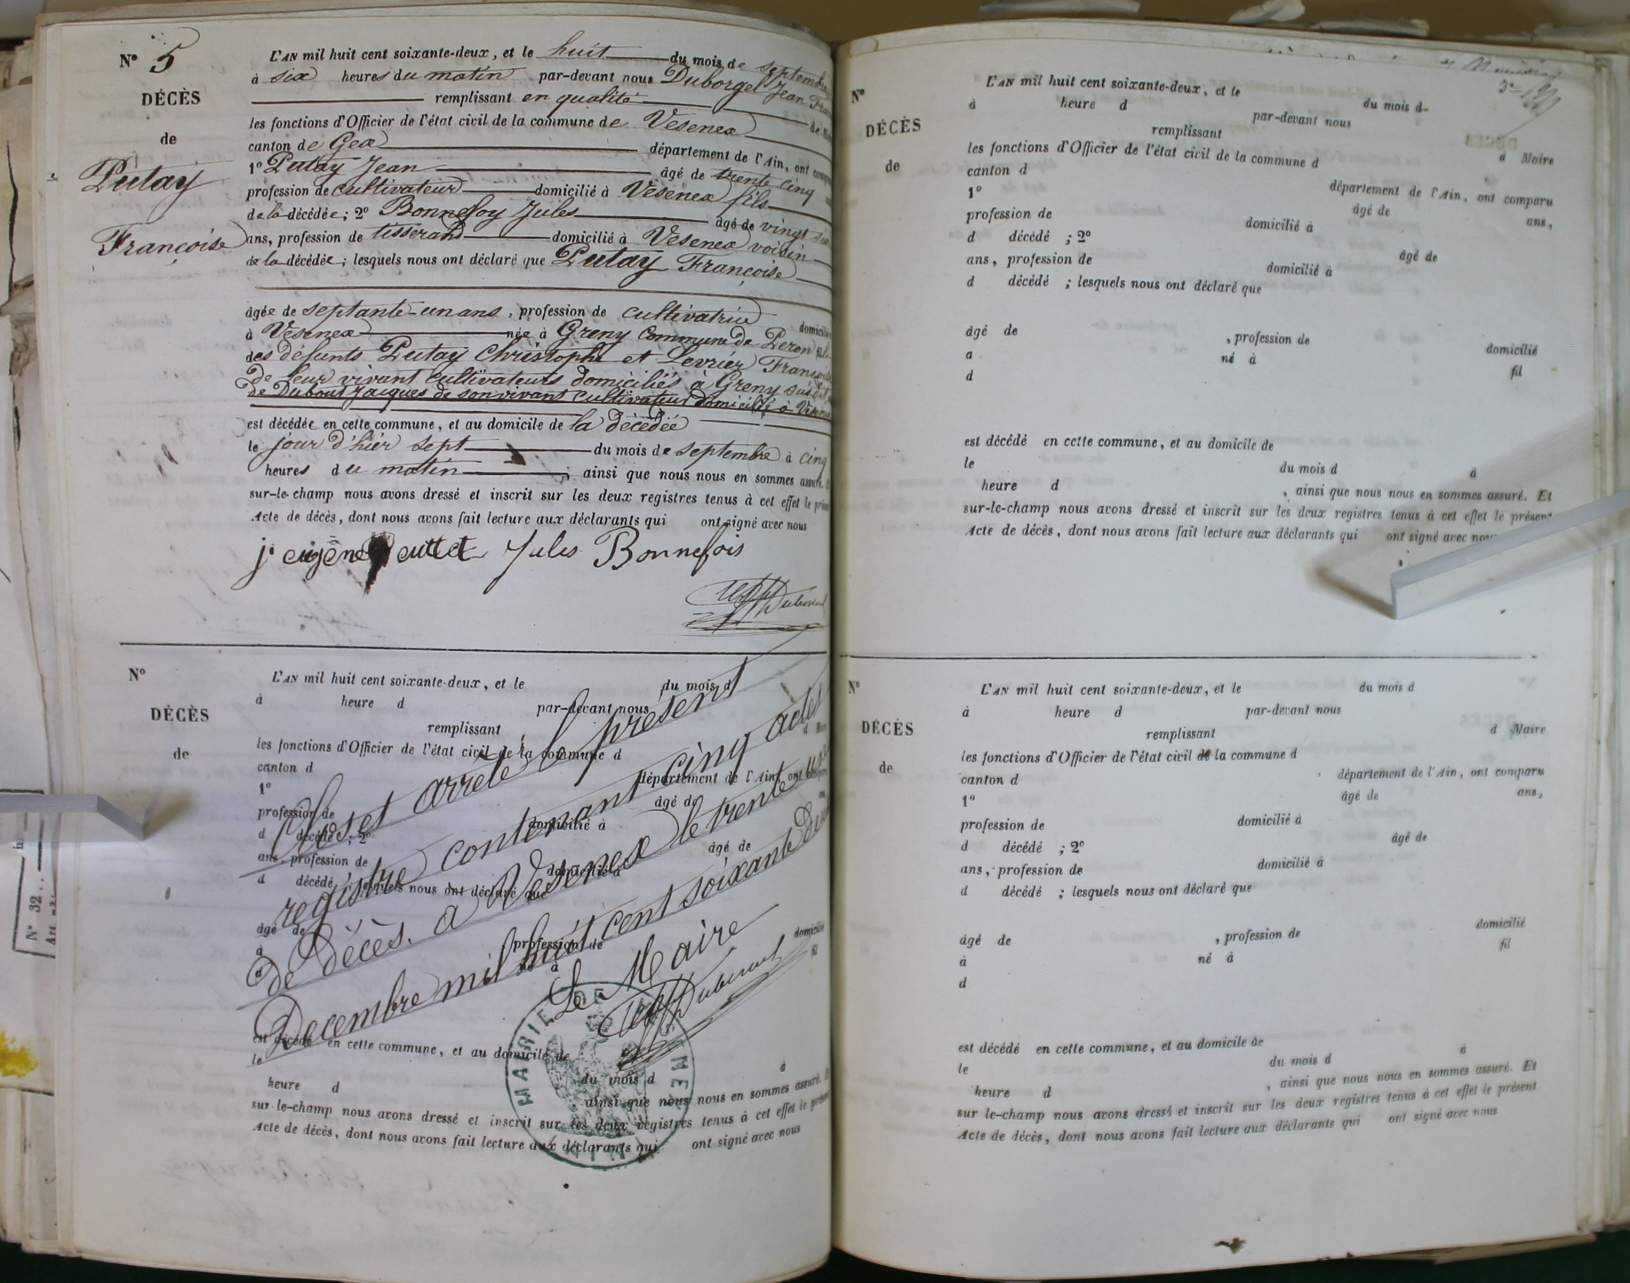 N° 5
DÉCÈS
de
Putay
Françoise
L'AN mil huit cent soixante-deux, et le huit du mois de septembre
à six heures du matin par-devant nous Duborgel Jean
remplissant en qualité
les fonctions d'Officier de l'état civil de la commune de Vesenex
canton de Gex département de l'Ain, ont
1° Putay Jean âgé de trente cinq
profession de cultivateur domicilié à Vesenex fils
de la décédée; 2° Bonnefoy Jules âgé de vingt
ans, profession de tisserand domicilié à Vesenex voisin
de la décédée; lesquels nous ont déclaré que Putay Françoise
âgée de septante-un ans, profession de cultivatrice
à Vesenex née à Greny Commune de Peron
des defunts Putay Christophe et Levrier
de leur vivant cultivateurs domiciliés à Greny
de Dubout Jacques de son vivant cultivateur domicilié à
est décédée en cette commune, et au domicile de la décédée
le jour d'hier sept du mois de septembre à cinq
heures du matin ; ainsi que nous nous en sommes assuré.
sur-le-champ nous avons dressé et inscrit sur les deux registres tenus à cet effet le
Acte de décès, dont nous avons fait lecture aux déclarants qui ont signé avec nous
Jules Bonnefois
N°
DÉCÈS
de
L'AN mil huit cent soixante-deux, et le du mois d
à heure d par-devant nous
remplissant
les fonctions d'Officier de l'état civil de la commune d
canton d département de l'Ain, ont
1° âgé de
profession de domicilié à
d décédé ; 2°
âgé de
ans, profession de domicilié à
d décédé ; lesquels nous ont déclaré que
âgé de , profession de domicilié
à né à fil
d
Clos et arrêté le présent
registre contenant cinq actes
de décès. a Vesenex le trente un
Decembre mil huit cent soixante Deux
Le Maire
est décédé en cette commune, et au domicile de
le du mois d à
heure d ainsi que nous nous en sommes assuré.
sur-le-champ nous avons dressé et inscrit sur les deux registres tenus à cet effet le
Acte de décès, dont nous avons fait lecture aux déclarants qui ont signé avec nous
MAIRIE DE
N°
DÉCÈS
de
L'AN mil huit cent soixante-deux, et le du mois d
à heure d par-devant nous
remplissant d Maire
les fonctions d'Officier de l'état civil de la commune d
canton d département de l'Ain, ont comparu
1° âgé de ans,
profession de domicilié à
d décédé ; 2° âgé de
ans, profession de domicilié à
d décédé ; lesquels nous ont déclaré que
âgé de , profession de domicilié
a né à fil
d
est décédé en cette commune, et au domicile de
le du mois d à
heure d , ainsi que nous nous en sommes assuré. Et
sur-le-champ nous avons dressé et inscrit sur les deux registres tenus à cet effet le présent
Acte de décès, dont nous avons fait lecture aux déclarants qui ont signé avec nous
N°
DÉCÈS
de
L'AN mil huit cent soixante-deux, et le du mois d
à heure d par-devant nous
remplissant d Maire
les fonctions d'Officier de l'état civil de la commune d
canton d département de l'Ain, ont comparu
1° âgé de ans,
profession de domicilié à
d décédé ; 2° âgé de
ans, profession de domicilié à
d décédé ; lesquels nous ont déclaré que
âgé de , profession de domicilié
à né à fil
d
est décédé en cette commune, et au domicile de
le du mois d à
heure d , ainsi que nous nous en sommes assuré. Et
sur le-champ nous avons dressé et inscrit sur les deux registres tenus à cet effet le présent
Acte de décès, dont nous avons fait lecture aux déclarants qui ont signé avec nous
N° 32